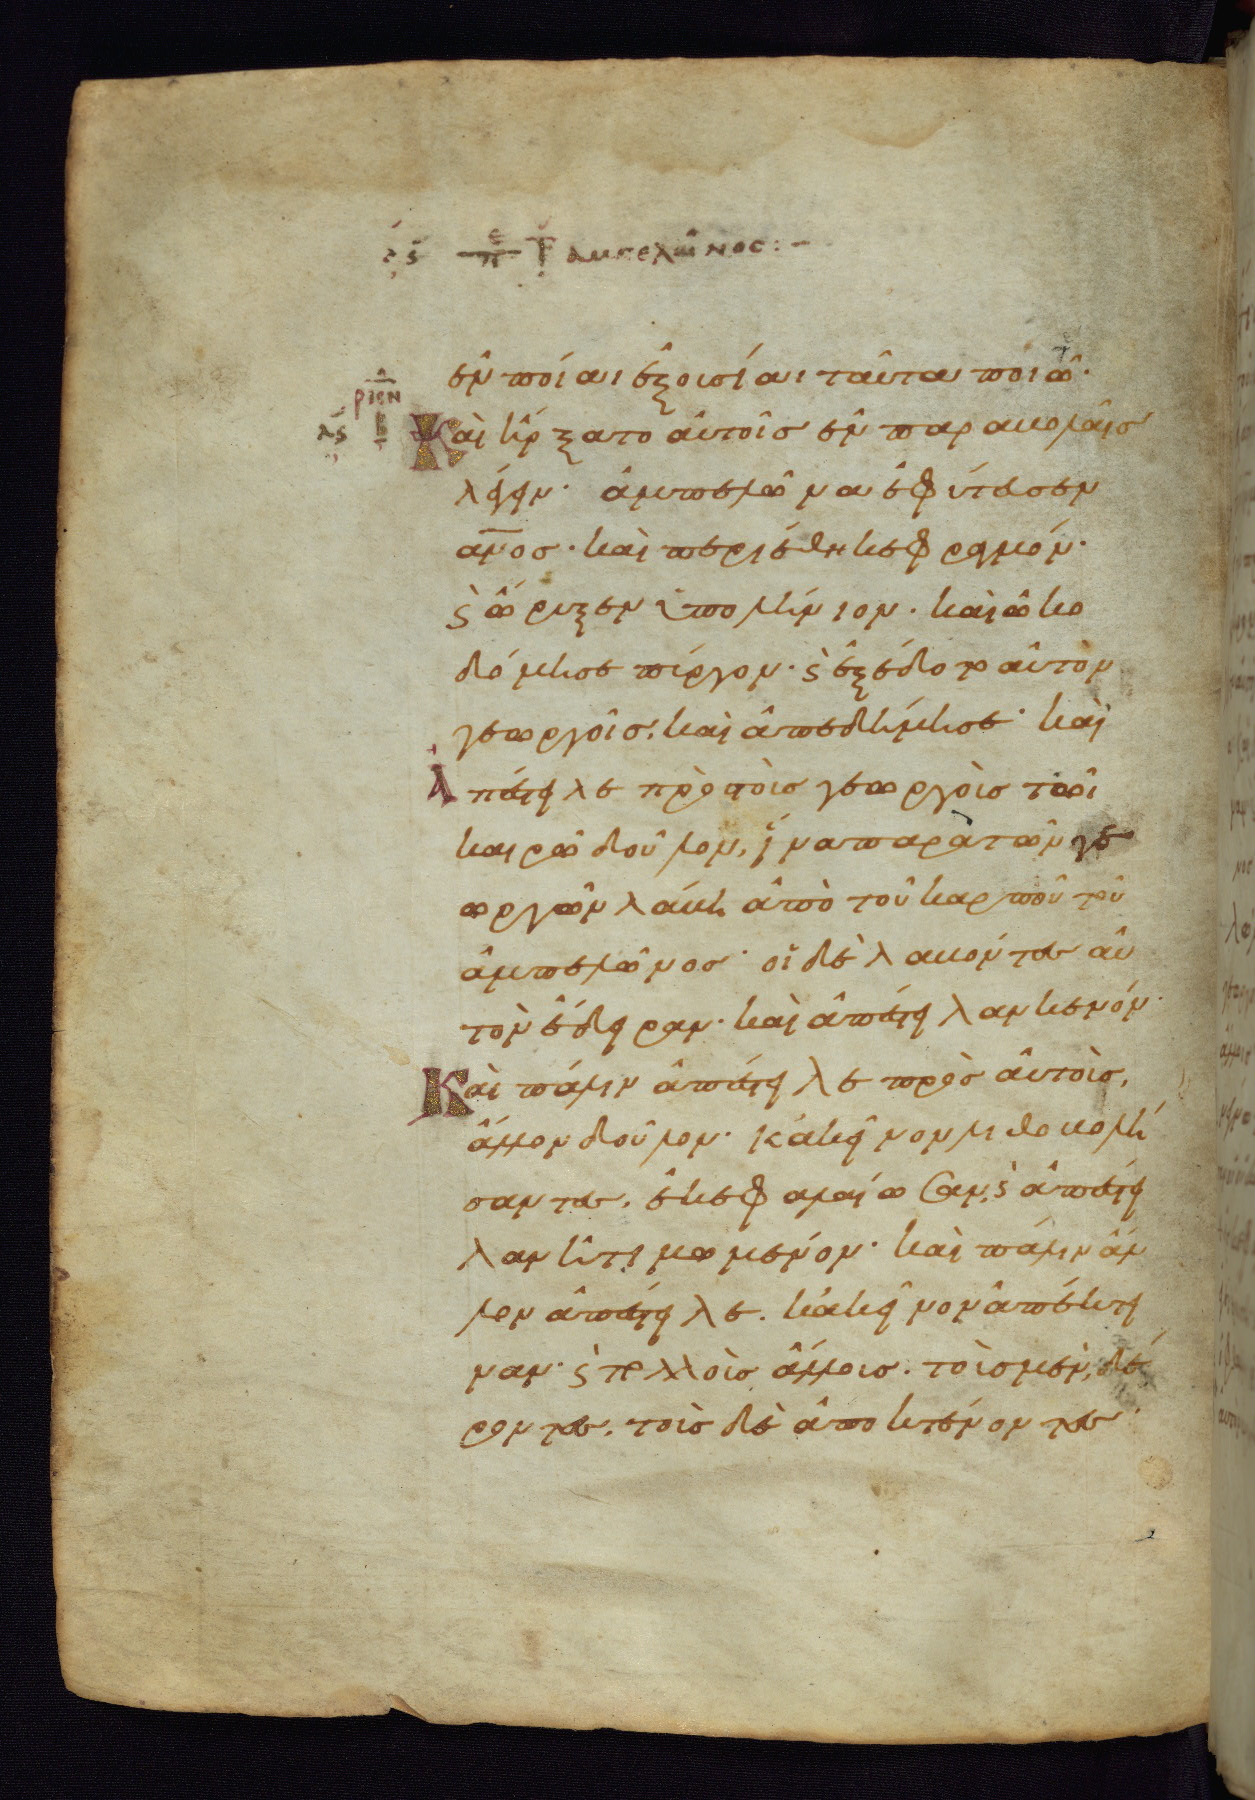 ἐν ποίαι ἐξουσίαι ταῦτα ποιῶ·
Καὶ ἤρξατο αὐτοῖσ ἐν παραβολαῖσ
λέγειν· ἀμπελῶνα ἐφύτευσεν
ἄνοσ· καὶ περιέθηκε φραγμόν·
ϛ ὤρυξεν ὑπολήνιον· καὶ ὠκο
δόμησε πύργον· ϛ ἐξέδοτο αὐτὸν
γεωργοῖσ, καὶ ἀπεδήμησε· καὶ
ἀπέστειλε πρὸσ τοὺσ γεωργοὺσ τῶι
καιρῶ δοῦλον, ἵνα παρὰ τῶν γε
ωργῶν λάβη ἀπὸ τοῦ καρποῦ τοῦ
ἀμπελῶνοσ· οἱ δὲ λαβόντεσ αὐ
τὸν ἔδειραν· καὶ ἀπέστειλαν κενόν·
Καὶ πάλιν ἀπέστειλε πρὸσ αὐτοὺσ,
ἄλλον δοῦλον· κἀκεῖνον λιθοβολή
σαντεσ, ἐκεφαλαίωσαν, ϛ ἀπέστει
λαν ἠτιμωμένον· καὶ πάλιν ἄλ
λον ἀπέστειλε. κἀκεῖνον ἀπέκτει
ναν· ϛ πολλοὺσ ἄλλουσ. τοὺσ μὲν, δέ
ροντεσ, τοὺσ δὲ ἀποκτένοντεσ·